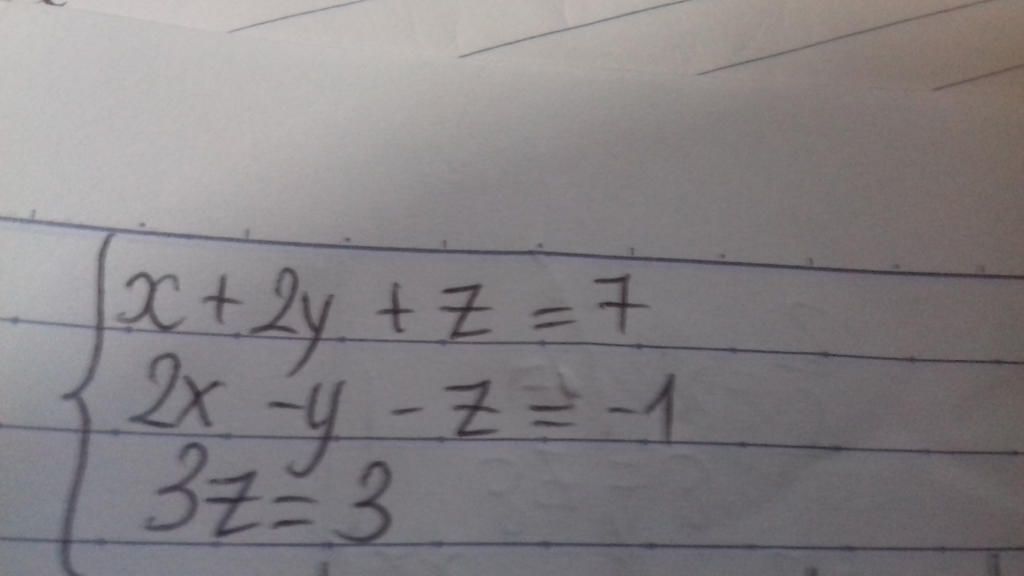 x + 2y + z = 7
2x - y - z = -1
3z = 3